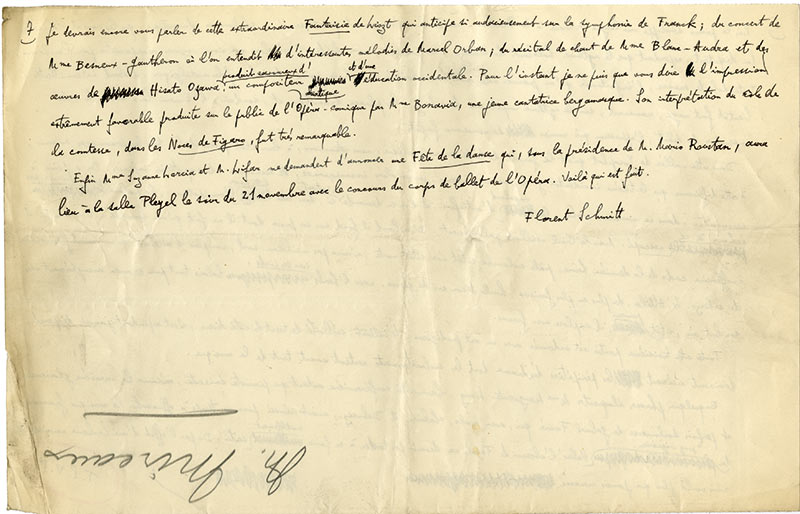 7 Je devrais encore vous parler de cette extraordinaire Fantaisie de Liszt qui anticipe si audacieusement sur la symphonie de Franck ; du concert de
Mme Besneux-Gautheron où l'on entendit d'intéressantes mélodies de Marcel Orban ; du récital de chant de Mme Blanc-Audra et des
œuvres de Hisato Ozawa, un compositeur et d'une éducation occidentale. Pour l'instant je ne puis que vous dire l'impression
extrêmement favorable produite sur le public de l'Opéra-comique par Mme Bonavia, une jeune cantatrice bergamasque. Son interprétation du rôle de
la comtesse, dans les Noces de Figaro, fut très remarquable.
Enfin Mme et M. Lifar me demandent d'annoncer une Fête de la danse qui, sous la présidence de M. Mario Roustan, aura
lieu à la salle Pleyel le soir du 21 novembre avec le concours du corps de ballet de l'Opéra. Voilà qui est fait.
Florent Schmitt
M. Mireaux